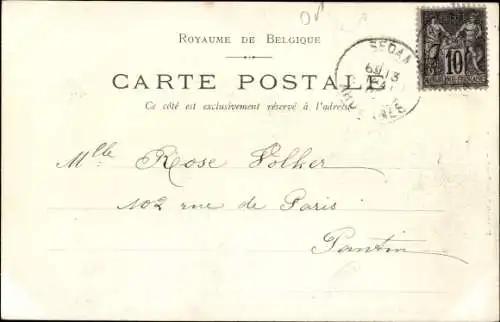 ROYAUME DE BELGIQUE
CARTE POSTALE
Ce côté est exclusivement réservé à l'adresse
SEDAN
10
Mlle Rose Volker
102 rue de Paris
Pantin